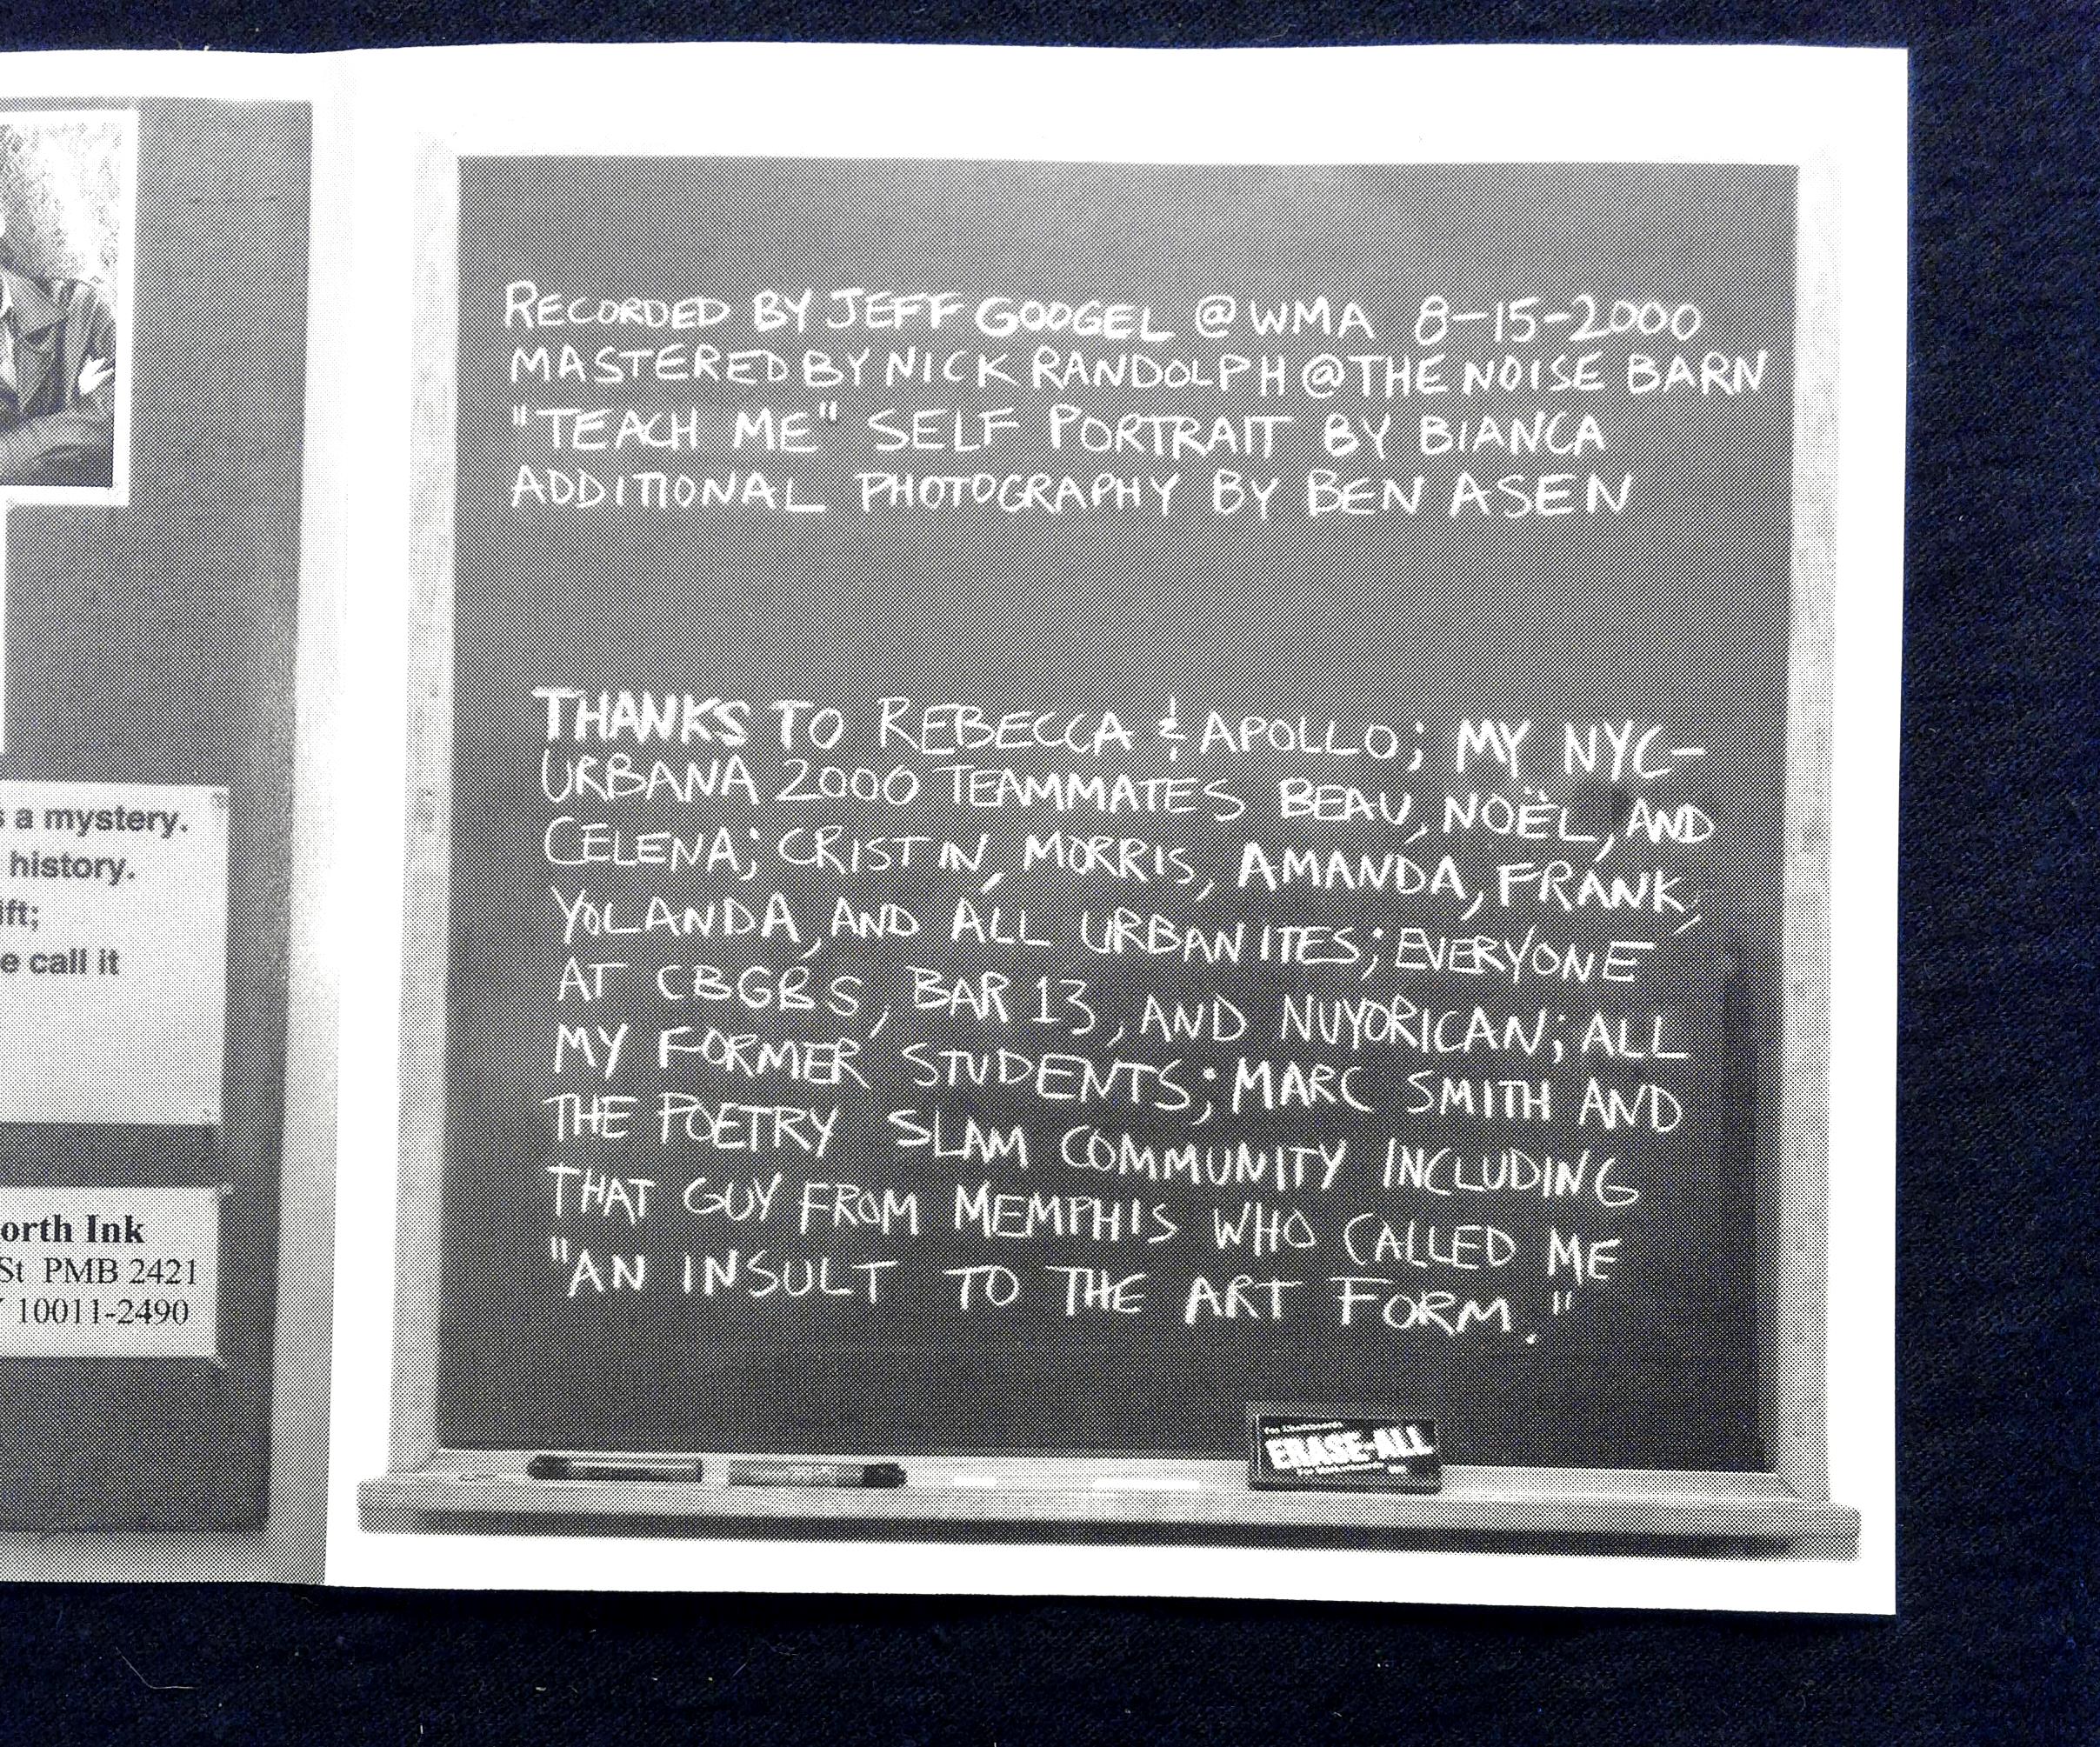 a mystery.
history.
ift;
e call it
orth Ink
St PMB 2421
10011-2490
RECORDED BY JEFF GOOGEL @ WMA 8-15-2000
MASTERED BY NICK RANDOLPH @ THE NOISE BARN
"TEACH ME" SELF PORTRAIT BY BIANCA
ADDITIONAL PHOTOGRAPHY BY BEN ASEN
THANKS TO REBECCA & APOLLO; MY NYC-
URBANA 2000 TEAMMATES BEAU, NOËL, AND
CELENA; CRISTIN, MORRIS, AMANDA, FRANK,
YOLANDA, AND ALL URBANITES; EVERYONE
AT CBGBS, BAR 13, AND NUYORICAN; ALL
MY FORMER STUDENTS; MARC SMITH AND
THE POETRY SLAM COMMUNITY INCLUDING
THAT GUY FROM MEMPHIS WHO CALLED ME
"AN INSULT TO THE ART FORM."
ERASE-ALL